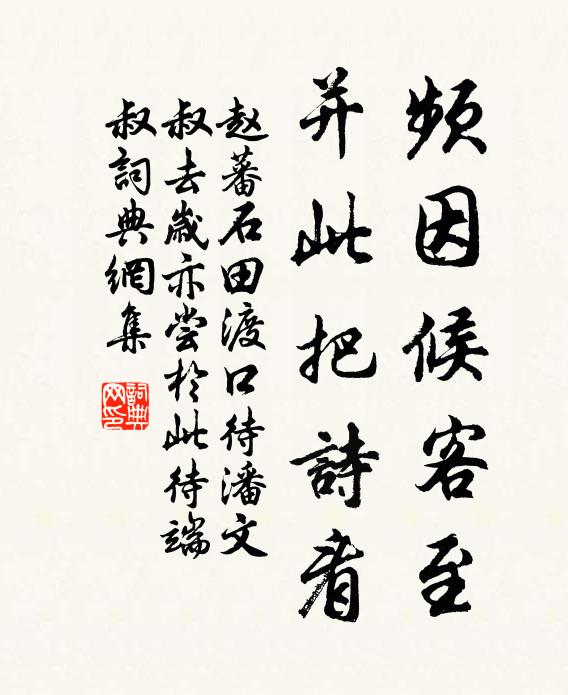 頻因候客至
并此把詩看
赵蕃石田渡口待潘文
叔去歲亦尝於此待端
叔詞典網集
詞典
网印